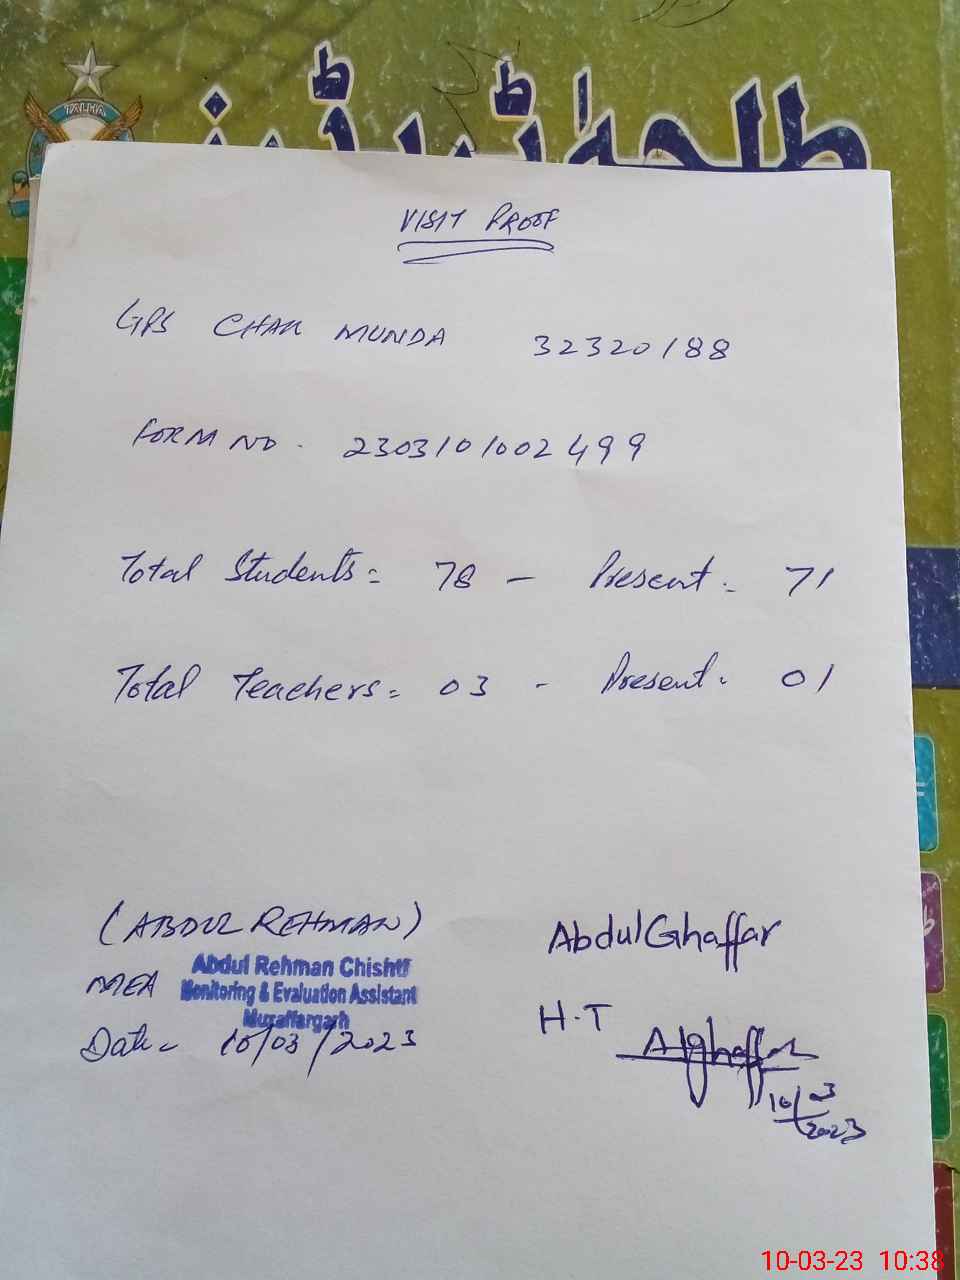 TALHA
طلحہٰ ٹریڈرز
VISIT PROOF
GPS CHAK MUNDA 32320188
FORM NO. 2303101002499
Total Students = 78 – Present = 71
Total Teachers = 03 - Present = 01
(ABDUL REHMAN)
MEA
Abdul Rehman Chishti
Monitoring & Evaluation Assistant
Muzaffargarh
Date = 10/03/2023
Abdul Ghaffar
H.T
Alghaffar
10/3
2023
10-03-23 10:38